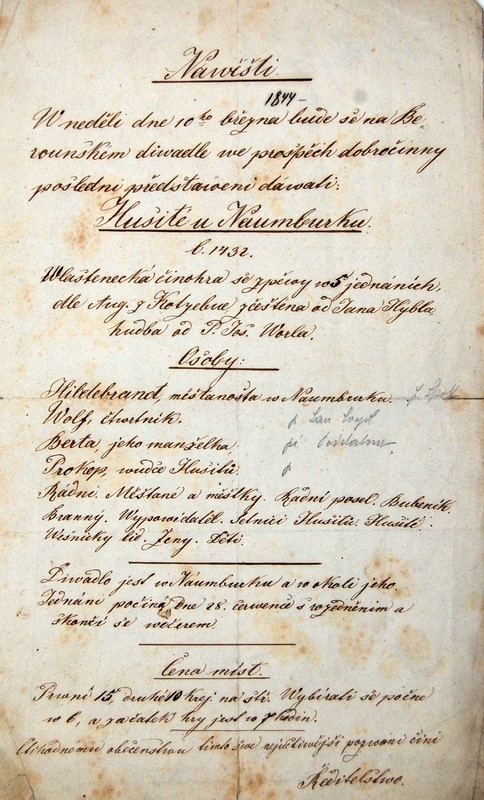 Nawěšti.
1844 -
W neděli dne 10ho března bude se na Be-
rounském diwadle we prospěch dobročinny
posledni představeni dáwati:
Husité u Naumburku.
l. 1432.
Wlastenecká činohra se zpěvy w 5 jednáních,
dle Aug. z Kotzebue zčeština od Jana Hybla
hudba od P. Jos. Worla.
Osoby:
Hildebrand, měšťanosta w Naumburku.
Wolf, čtvrtník. p
Berta, jeho manželka,
Prokop, wudce Husitů p
Rádní. Měšťané a měštky. Radní posel. Bubeník.
Branný. Wypowídatel. Setníci Husitů. Husité.
Wesnický lid. Ženy. Děti.
Diwadlo jest w Naumburku a w okolí jeho.
Jednání počíná dne 28. července s rozedněním a
skončí se večerem.
Cena míst.
První 15, druhé 10 krej na stř. Wybírati se počne
w 6, a začátek hry jest w 7 hodin.
obecenstvu tímto své nejuctivější pozwaní činí
Ředitelstwo.